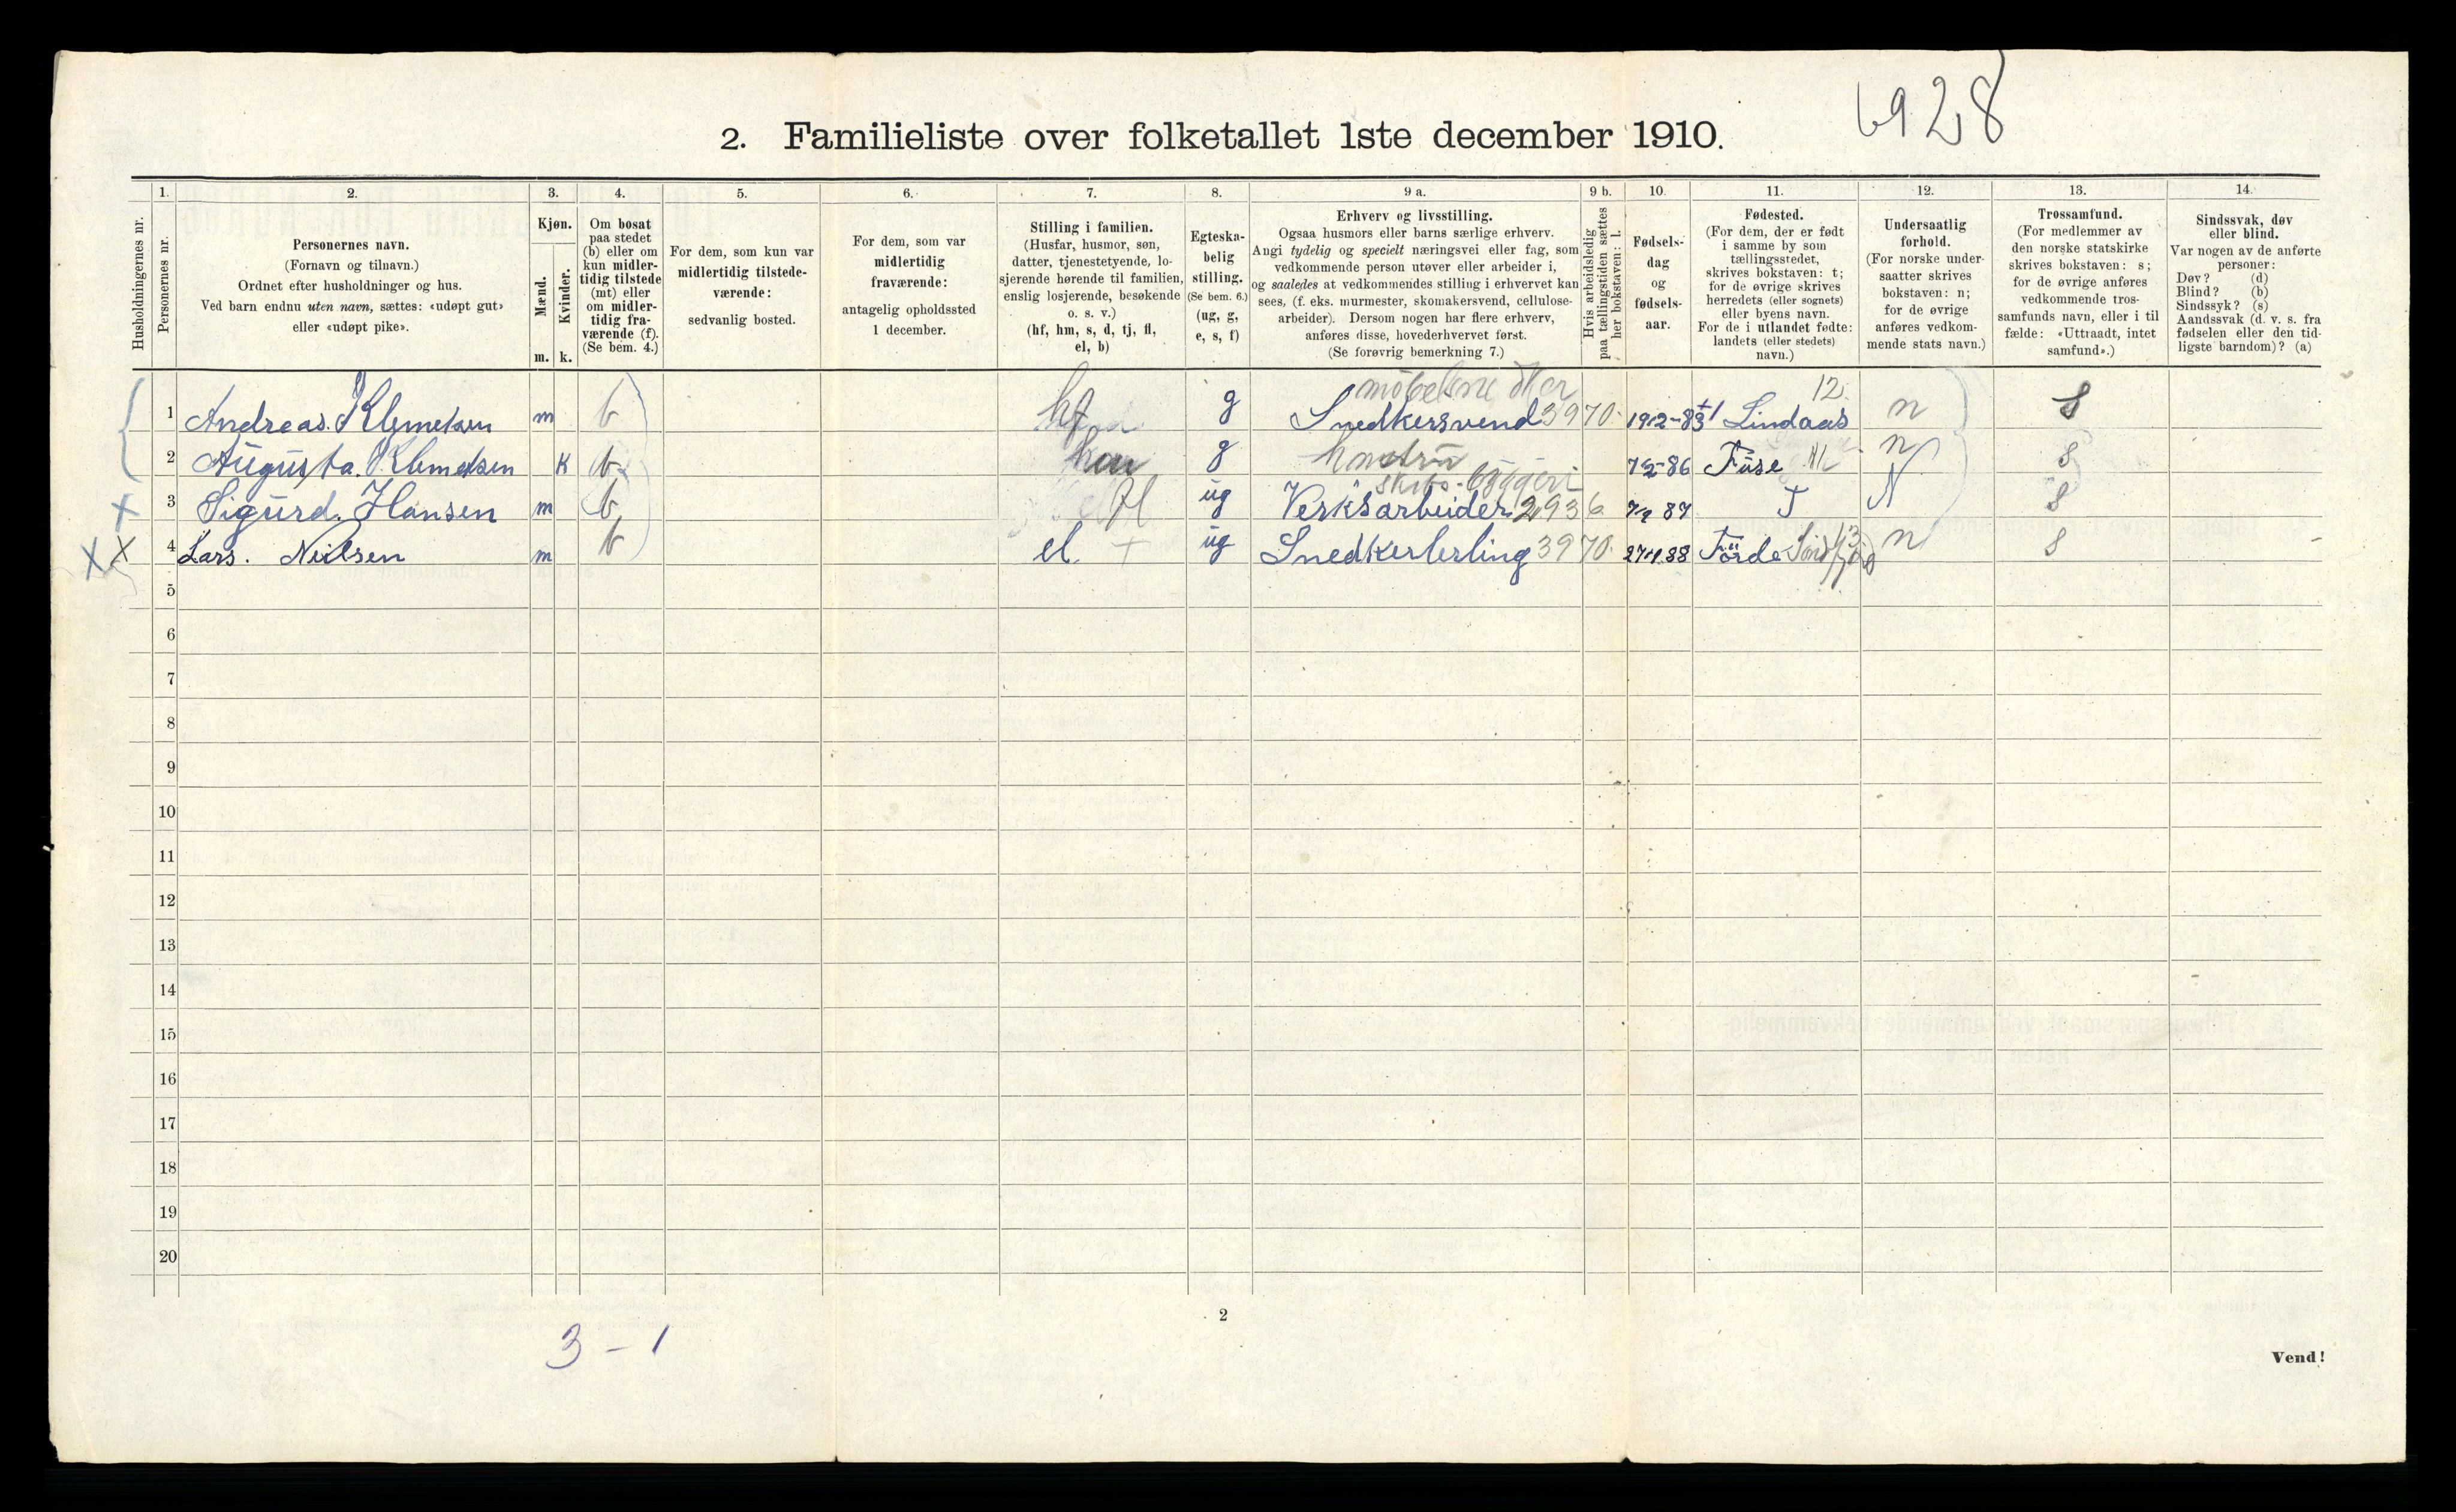 6928
2. Familieliste over folketallet 1ste december 1910.
Husholdningernes nr.
1. Personernes nr.
2. Personernes navn.
(Fornavn og tilnavn.)
Ordnet efter husholdninger og hus.
Ved barn endnu uten navn, sættes: «udøpt gut»
eller «udøpt pike».
3. Kjøn.
Mænd. m.
Kvinder. k.
4. Om bosat
paa stedet
(b) eller om
kun midler-
tidig tilstede
(mt) eller
om midler-
tidig fra-
værende (f).
(Se bem. 4.)
5. For dem, som kun var
midlertidig tilstede-
værende:
sedvanlig bosted.
6. For dem, som var
midlertidig
fraværende:
antagelig opholdssted
1 december.
7. Stilling i familien.
(Husfar, husmor, søn,
datter, tjenestetyende, lo-
sjerende hørende til familien,
enslig losjerende, besøkende
o. s. v.)
(hf, hm, s, d, tj, fl,
el, b)
8. Egteska-
belig
stilling.
(Se bem. 6.)
(ug, g,
e, s, f)
9 a. Erhverv og livsstilling.
Ogsaa husmors eller barns særlige erhverv.
Angi tydelig og specielt næringsvei eller fag, som
vedkommende person utøver eller arbeider i,
og saaledes at vedkommendes stilling i erhvervet kan
sees, (f. eks. murmester, skomakersvend, cellulose-
arbeider). Dersom nogen har flere erhverv,
anføres disse, hovederhvervet først.
(Se forøvrig bemerkning 7.)
9 b. Hvis arbeidsledig
paa tællingstiden sættes
her bokstaven: l.
10. Fødsels-
dag
og
fødsels-
aar.
11. Fødested.
(For dem, der er født
i samme by som
tællingsstedet,
skrives bokstaven: t;
for de øvrige skrives
herredets (eller sognets)
eller byens navn.
For de i utlandet fødte:
landets (eller stedets)
navn.)
12. Undersaatlig
forhold.
(For norske under-
saatter skrives
bokstaven: n;
for de øvrige
anføres vedkom-
mende stats navn.)
13. Trossamfund.
(For medlemmer av
den norske statskirke
skrives bokstaven: s;
for de øvrige anføres
vedkommende tros-
samfunds navn, eller i til
fælde: «Uttraadt, intet
samfund».)
14. Sindssvak, døv
eller blind.
Var nogen av de anførte
personer:
Døv? (d)
Blind? (b)
Sindssyk? (s)
Aandssvak (d. v. s. fra
fødselen eller den tid-
ligste barndom)? (a)
12.
1 Andreas. Klemetsen m b hf g Snedkersvend 3970. Lindaas n s
2 Augusta. Klemetsen K b g hustru Fuse n s
3 Sigurd. Hansen m b fl ug Verksarbeider 2936 T N s
4 Lars. Nielsen m b el ug Snedkerlerling 3970. Førde n s
5
6
7
8
9
10
11
12
13
14
15
16
17
18
19
20
2
3 - 1
Vend!